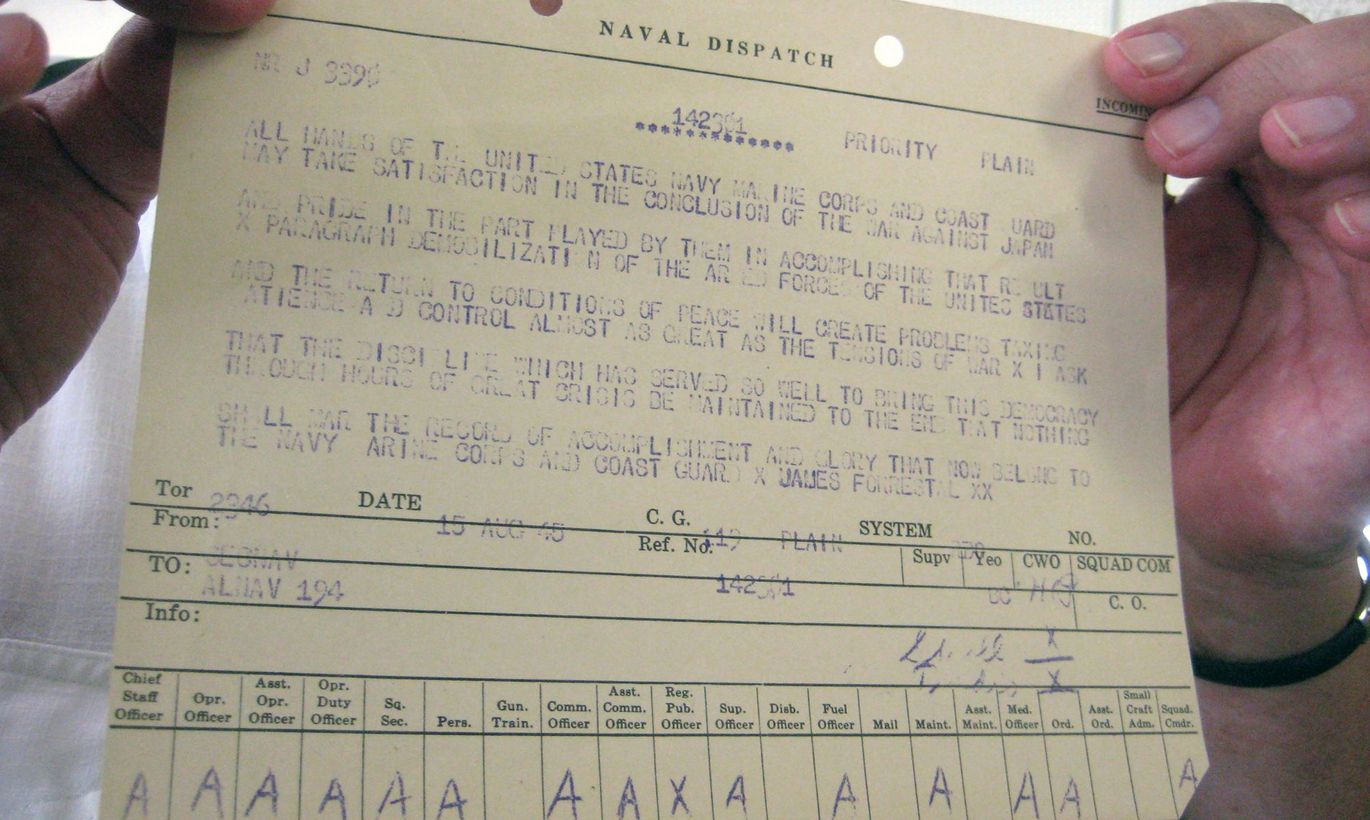 NAVAL DISPATCH
NR J 3390
INCOMIN
142301 PRIORITY PLAIN
*************
ALL HANDS OF T E UNITED STATES NAVY MARINE CORPS AND COAST UARD
MAY TAKE SATISFACTION IN THE CONCLUSION OF THE WAR AGAINST JAPAN
AND PRIDE IN THE PART PLAYED BY THEM IN ACCOMPLISHING THAT RE ULT
X PARAGRAPH DEMOBILIZATI N OF THE AR ED FORCES OF THE UNITES STATES
AND THE RETURN TO CONDITIONS OF PEACE WILL CREATE PROBLEMS TAXING
ATIENCE A D CONTROL ALMOST AS GREAT AS THE TENSIONS OF WAR X I ASK
THAT THE DISCI LINE WHICH HAS SERVED SO WELL TO BRING THIS DEMOCRACY
THROUGH HOURS OF GREAT CRISIS BE MAINTAINED TO THE END THAT NOTHING
SHALL MAR THE RECORD OF ACCOMPLISHMENT AND GLORY THAT NOW BELONG TO
THE NAVY ARINE CORPS AND COAST GUARD X JAMES FORRESTAL XX
Tor 2346 DATE 15 AUG 45 C. G. SYSTEM NO.
From: SECNAV Ref. No. PLAIN Supv Yeo CWO SQUAD COM
TO: ALNAV 194 142301 C. O.
Info:
X
X
Chief Staff Officer Opr. Officer Asst. Opr. Officer Opr. Duty Officer Sq. Sec. Pers. Gun. Train. Comm. Officer Asst. Comm. Officer Reg. Pub. Officer Sup. Officer Disb. Officer Fuel Officer Mail Maint. Asst. Maint. Med. Officer Ord. Asst. Ord. Small Craft Adm. Squad. Cmdr.
A A A A A A A A X A A A A A A